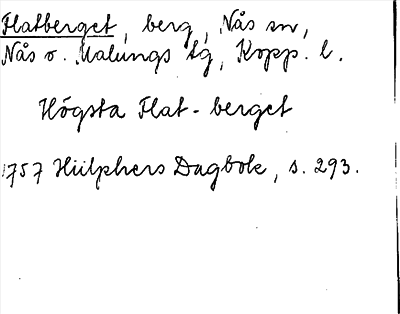 Flatberget, berg, Nås sn,
Nås o. Malungs tg, Kopp. l.
Högsta Flat-berget
1757 Hülphers Dagbok, s. 293.